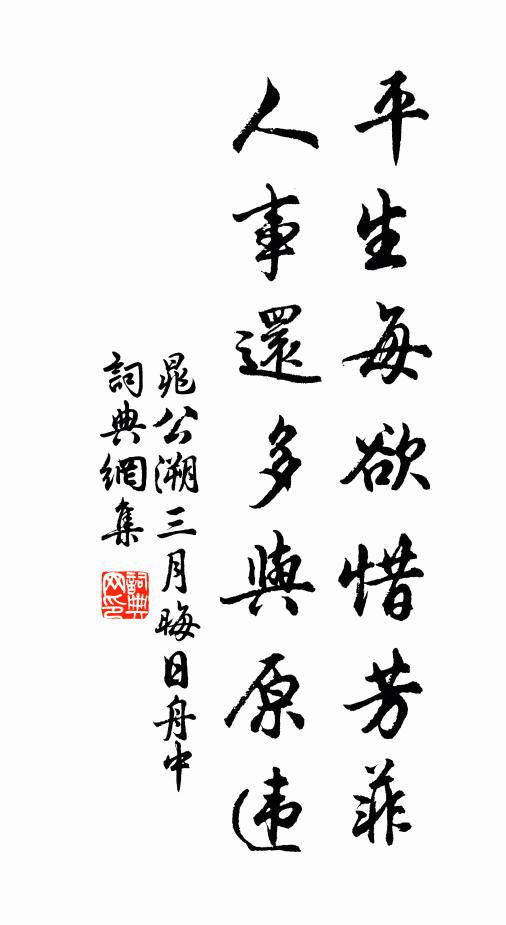 平生每欲惜芳菲
人事還多與原违
晁公溯三月晦日舟中
詞典網集
詞典网印